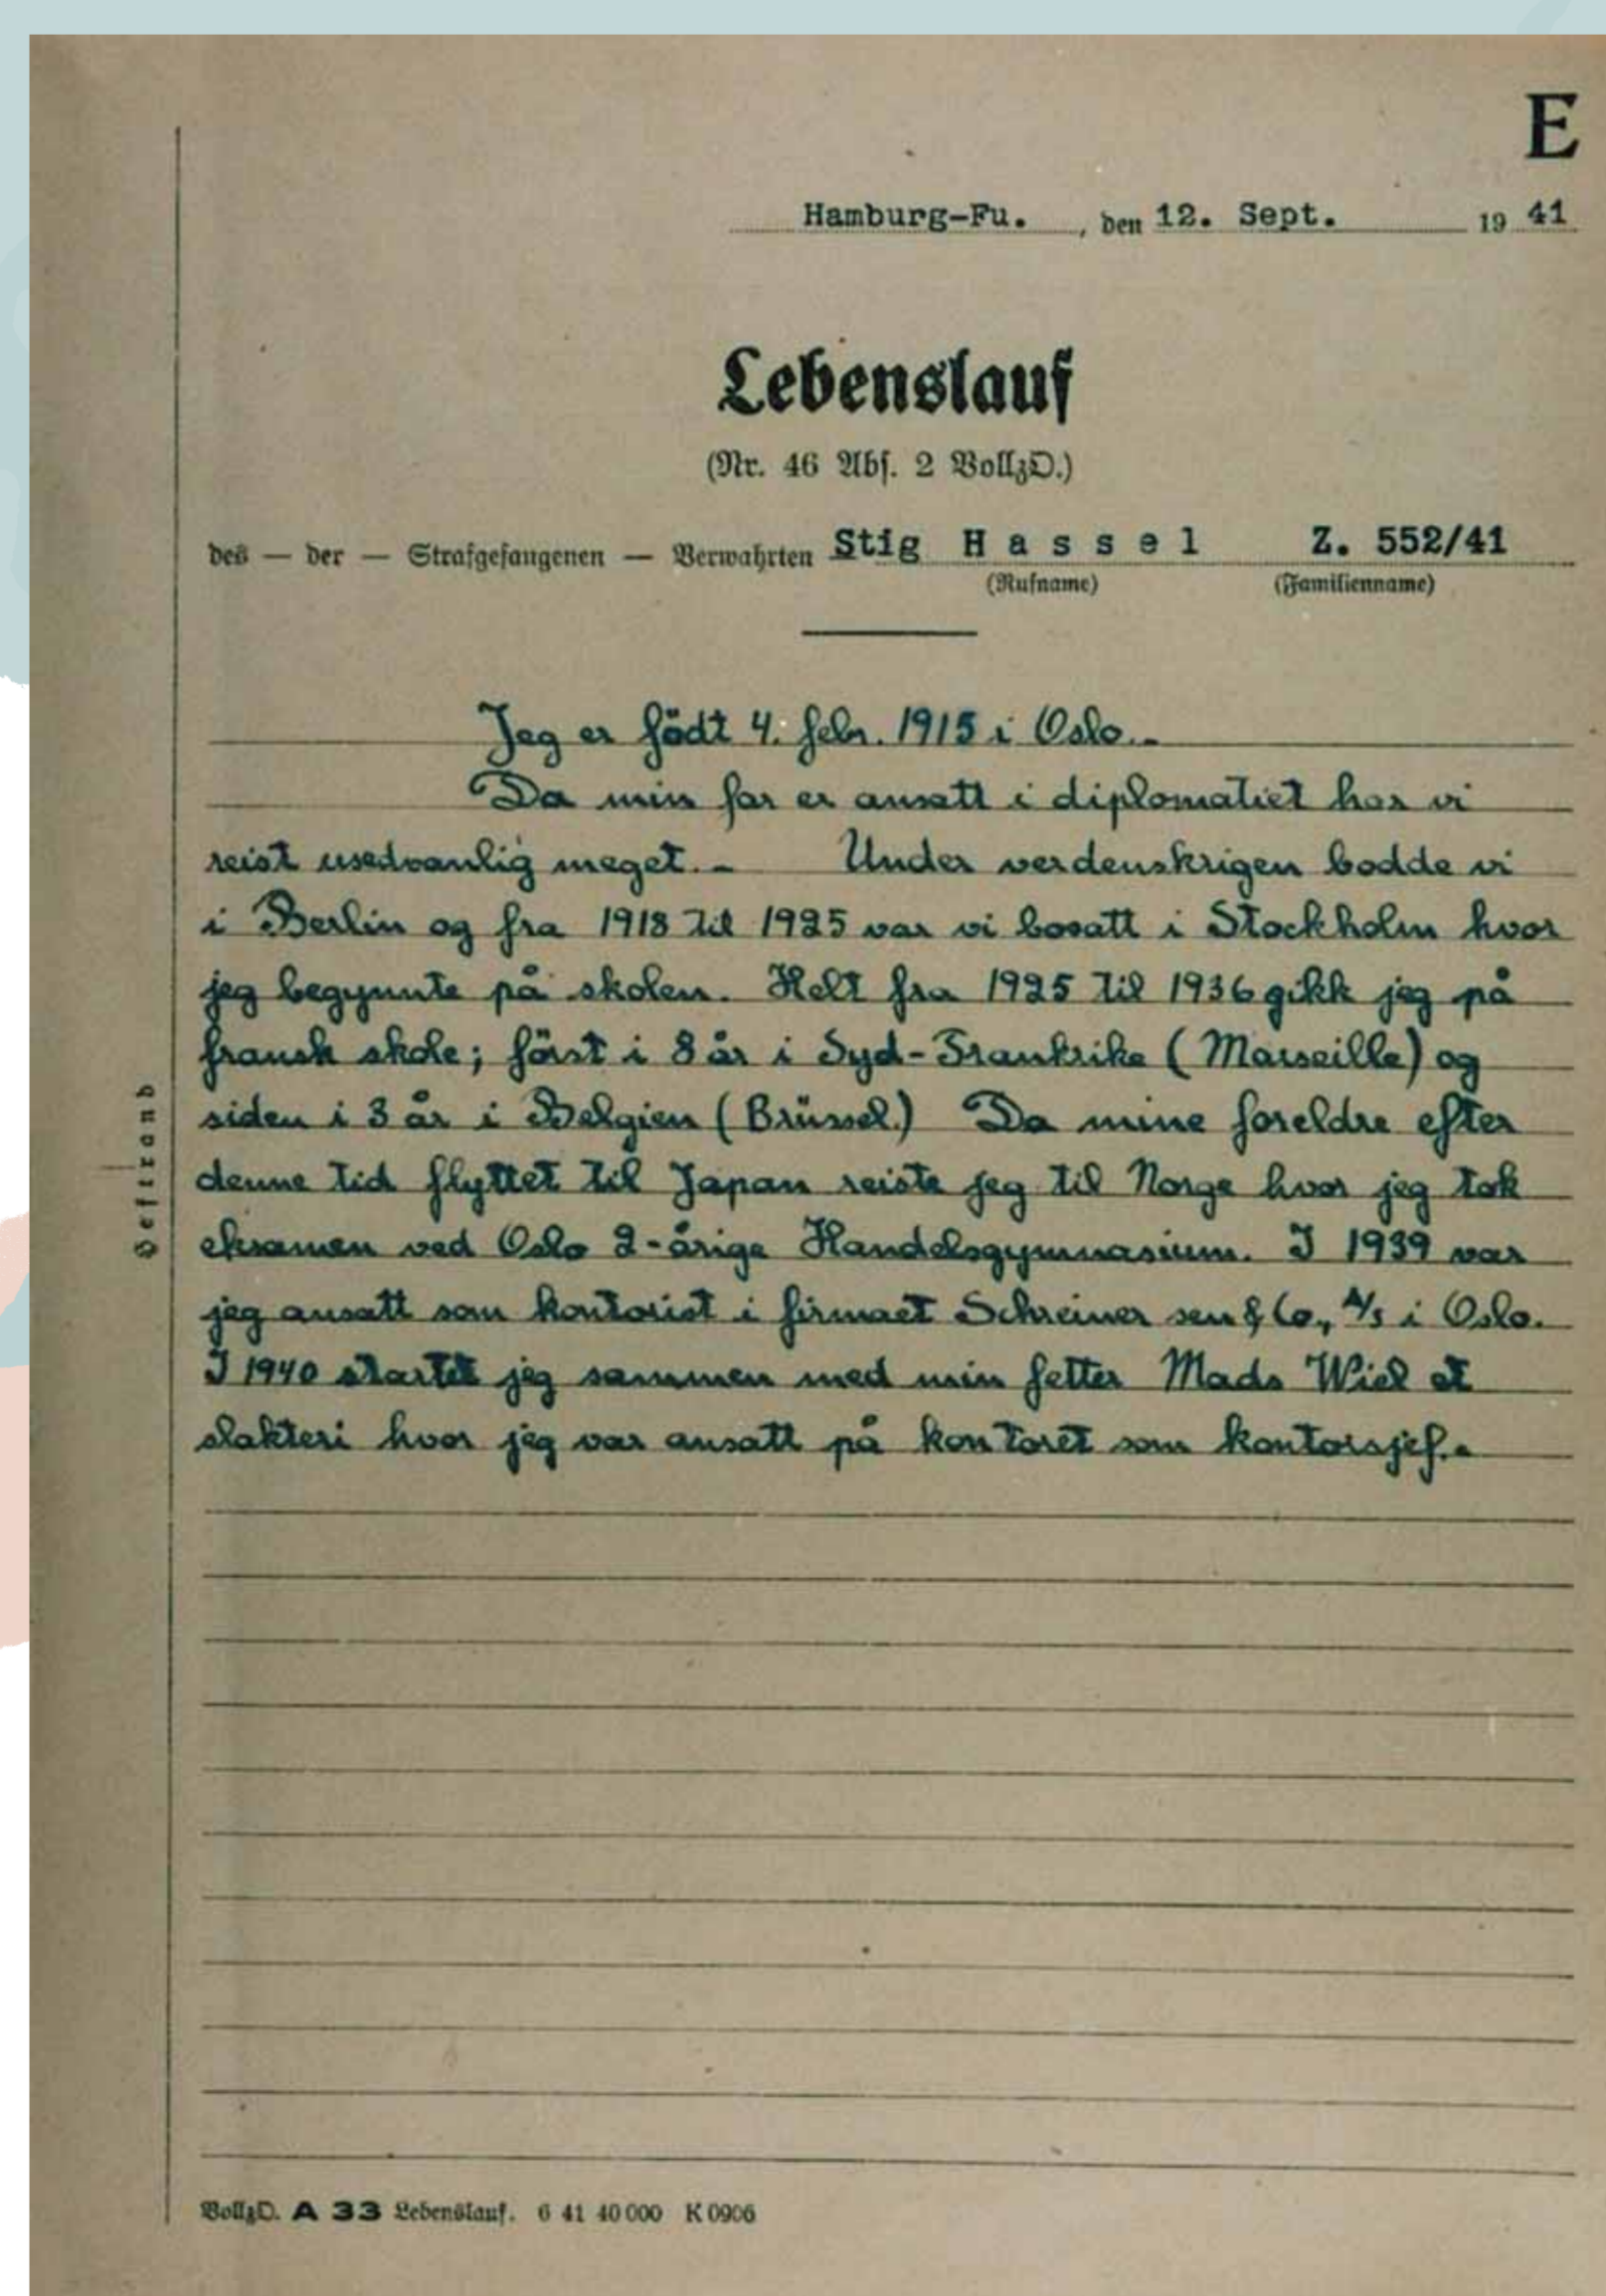 E
Hamburg-Fu. , den 12. Sept. 19 41
Lebenslauf
(Nr. 46 Abs. 2 VollzO.)
des — der — Strafgefangenen — Verwahrten Stig H a s s e l Z. 552/41
(Rufname) (Familienname)
Jeg er födt 4. febr. 1915 i Oslo.-
Da min far er ansatt i diplomatiet har vi
reist usedvanlig meget.- Under verdenskrigen bodde vi
i Berlin og fra 1918 til 1925 var vi bosatt i Stockholm hvor
jeg begynnte på skolen. Helt fra 1925 til 1936 gikk jeg på
fransk skole; först i 8 år i Syd-Frankrike (Marseille) og
siden i 3 år i Belgien (Brüssel.) Da mine foreldre efter
denne tid flyttet til Japan reiste jeg til Norge hvor jeg tok
eksamen ved Oslo 2-årige Handelsgymnasium. I 1939 var
jeg ansatt som kontorist i firmaet Schreiner sen & Co., A/S i Oslo.
I 1940 startet jeg sammen med min fetter Mads Wiel et
slakteri hvor jeg var ansatt på kontoret som kontorsjef.-
Heftrand
VollzO. A 33 Lebenslauf. 6 41 40 000 K 0906